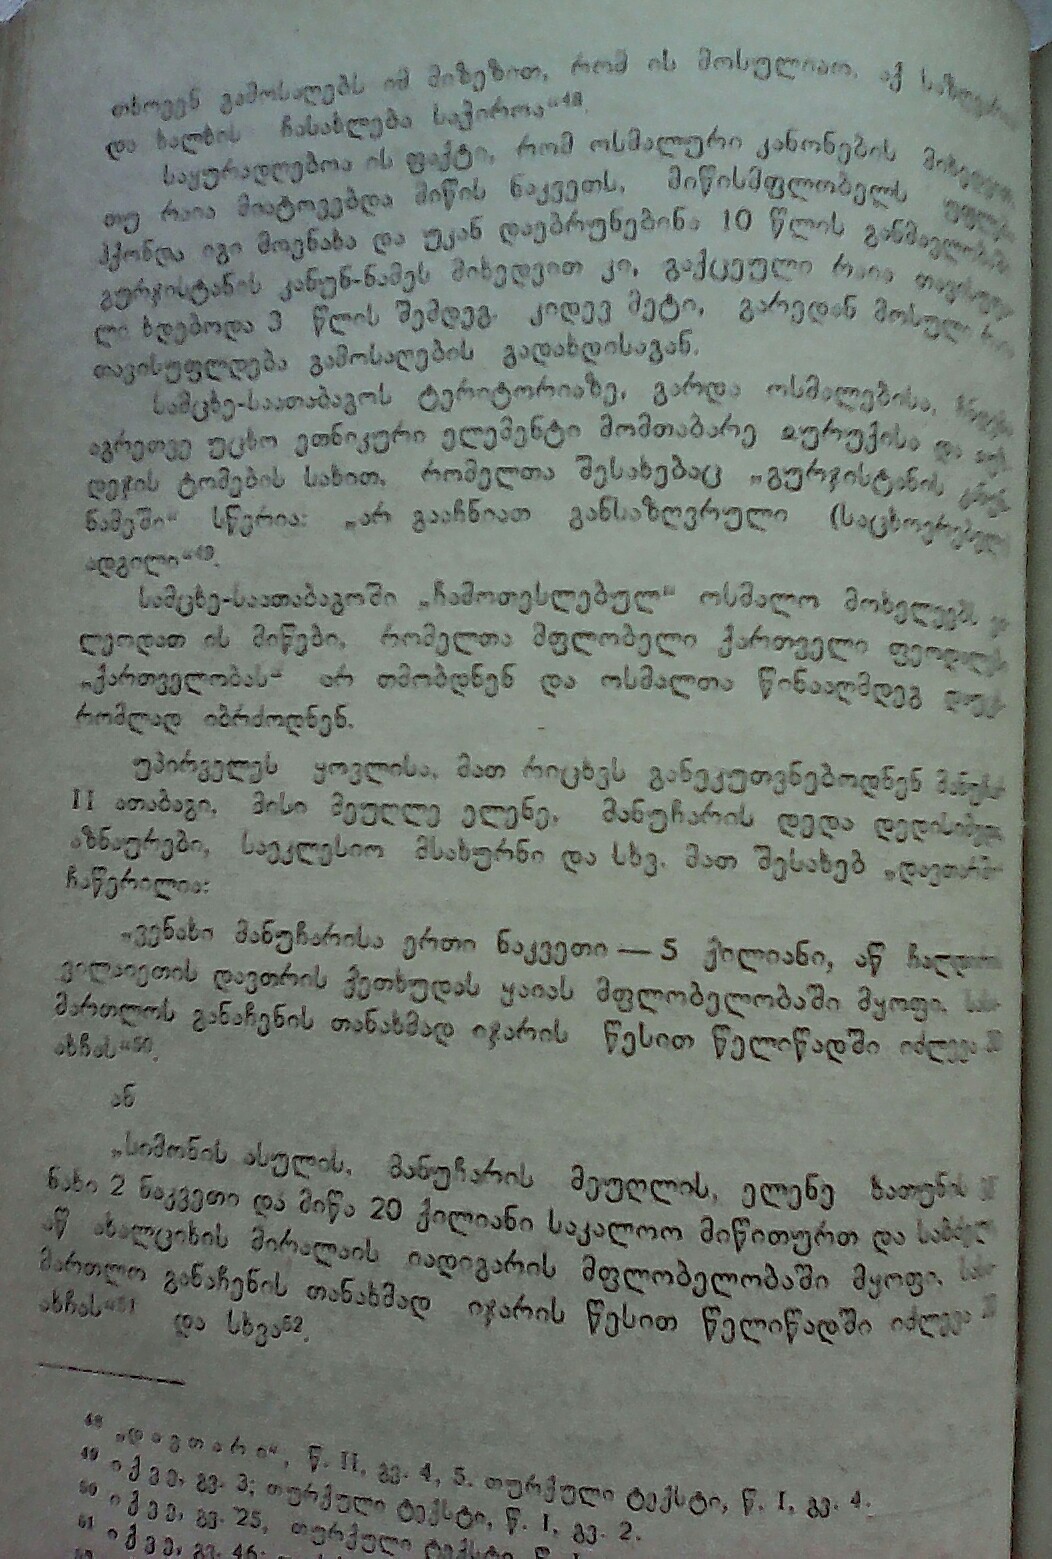 თხოვენ გამოსაღებს იმ მიზეზით, რომ ის მოსულიაო, აქ საზღვარია
და ხალხის ჩასახლება საჭიროა“48.
საყურადღებოა ის ფაქტი, რომ ოსმალური კანონების მიხედვით,
თუ რაია მიატოვებდა მიწის ნაკვეთს, მიწისმფლობელს უფლება
ჰქონდა იგი მოენახა და უკან დაებრუნებინა 10 წლის განმავლობაში
გურჯისტანის კანუნ-ნამეს მიხედვით კი, გაქცეული რაია თავისუფა-
ლი ხდებოდა 3 წლის შემდეგ. კიდევ მეტი, გარედან მოსული რაია
თავისუფლდება გამოსაღების გადახდისაგან.
სამცხე-საათაბაგოს ტერიტორიაზე, გარდა ოსმალებისა,
აგრეთვე უცხო ეთნიკური ელემენტი მომთაბარე იურუქისა და
დეჯის ტომების სახით, რომელთა შესახებაც „გურჯისტანის კანუნ-
ნამეში“ სწერია: „არ გააჩნიათ განსაზღვრული (საცხოვრებელი
ადგილი“49.
სამცხე-საათაბაგოში „ჩამოთესლებულ“ ოსმალო მოხელეებს
ლეოდათ ის მიწები, რომელთა მფლობელი ქართველი ფეოდალები
„ქართველობას“ არ თმობდნენ და ოსმალთა წინააღმდეგ
რომლად იბრძოდნენ.
უპირველეს ყოვლისა, მათ რიცხვს განეკუთვნებოდნენ მანუჩარ
II ათაბაგი, მისი მეუღლე ელენე, მანუჩარის დედა დედისიმედი,
აზნაურები, საეკლესიო მსახურნი და სხვ. მათ შესახებ „დავთარში“
ჩაწერილია:
„ვენახი მანუჩარისა ერთი ნაკვეთი — 5 ქილიანი, აწ ჩალდირის
ვილაიეთის დავთრის ქეთხუდას ყაიას მფლობელობაში მყოფი. სასა-
მართლოს განაჩენის თანახმად იჯარის წესით წელიწადში იძლევა
ახჩას“50.
ან
„სიმონის ასულის, მანუჩარის მეუღლის, ელენე ხათუნის ვე-
ნახი 2 ნაკვეთი და მიწა 20 ქილიანი საკალოო მიწითურთ და
აწ ახალციხის მირალაის იადიგარის მფლობელობაში მყოფი. სასა-
მართლო განაჩენის თანახმად იჯარის წესით წელიწადში იძლევა
ახჩას“51 და სხვა52.
48 „დავთარი“, წ. II, გვ. 4, 5. თურქული ტექსტი, წ. I, გვ. 4.
49 იქვე, გვ. 3; თურქული ტექსტი, წ. I, გვ. 2.
50 იქვე, გვ. 25, თურქული ტექსტი,
51 იქვე, გვ. 46;